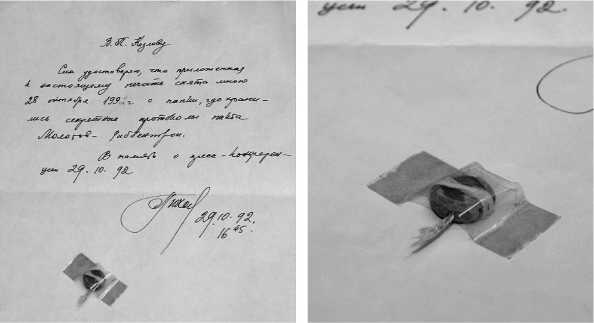 В. П. Козлову
Сим удостоверяю, что приложенная
к настоящему печать снята мною
28 октября 1992 г с папки, где храни-
лись секретные протоколы пакта
Молотов – Риббентроп.
В память о пресс-конферен-
ции 29. 10. 92
29.10.92.
16 45.
ции 29. 10. 92.